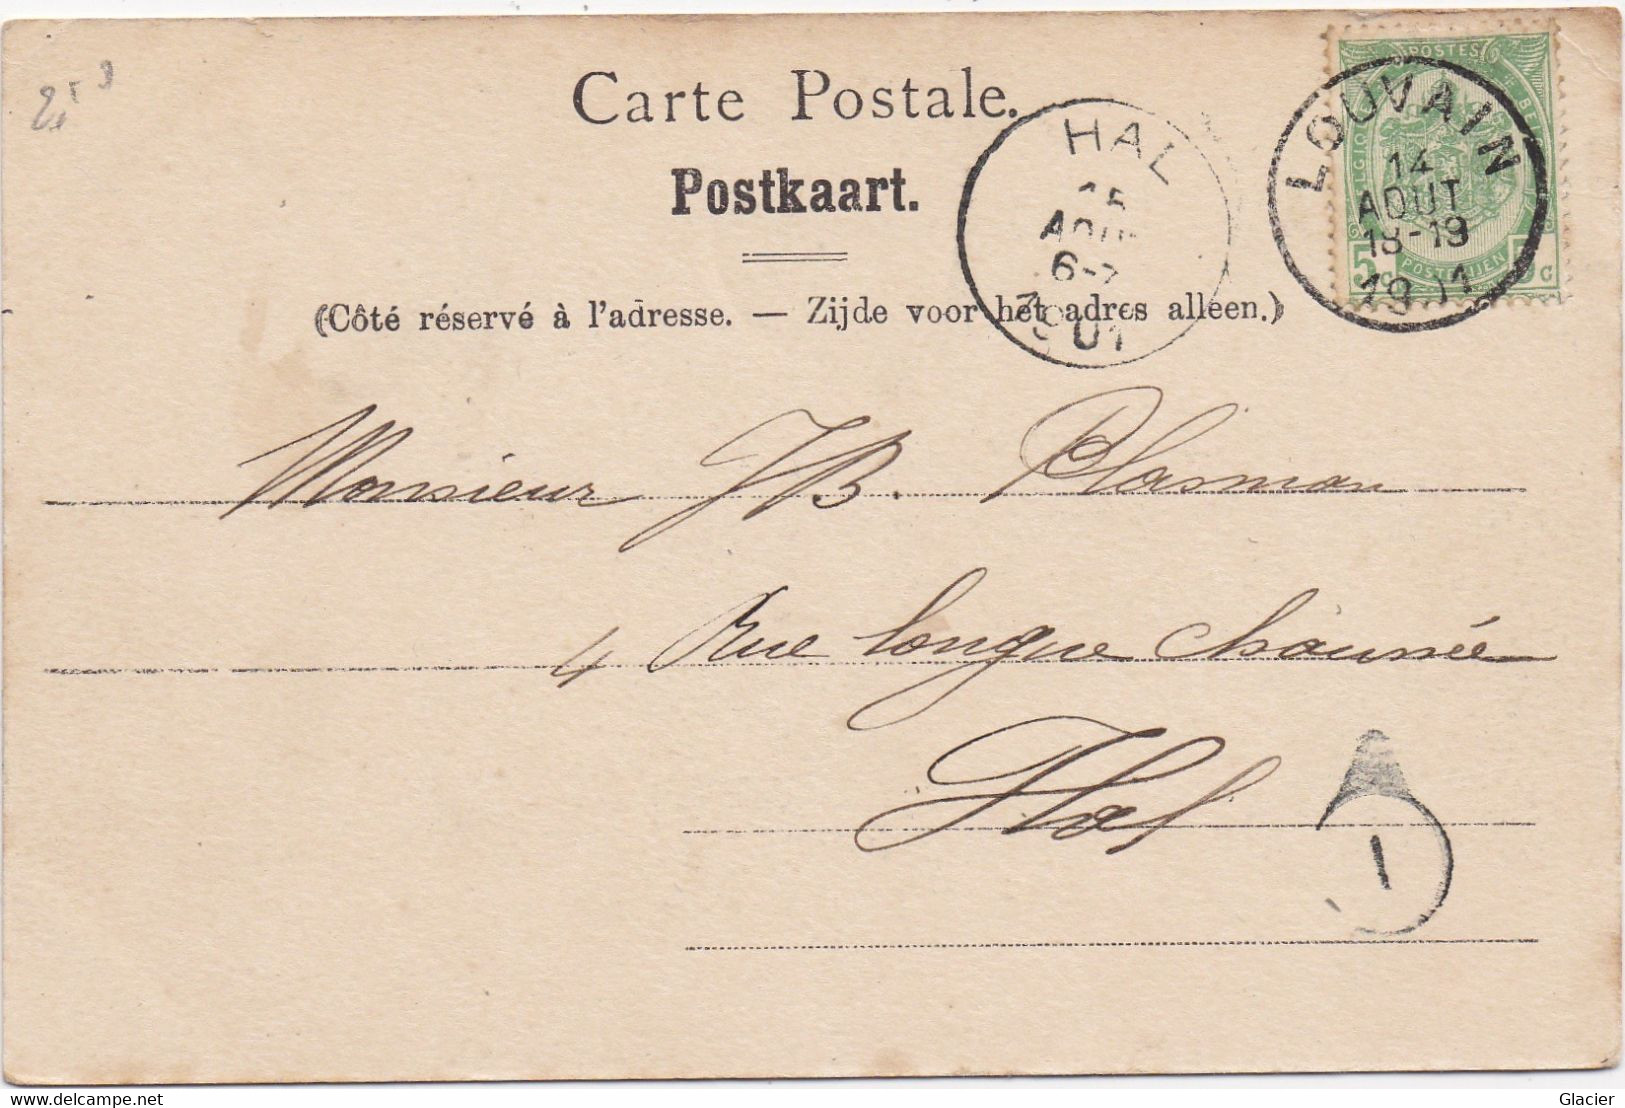 Carte Postale.
Postkaart.
(Côté réservé à l'adresse. — Zijde voor het adres alleen.)
POSTES
BELGIQUE
5c 5c
POSTERIJEN
LOUVAIN
14
AOUT
18-19
1901
HAL
15
AOU
6-7
1901
Monsieur JB. Plasman
4 Rue longue chaussée
Hal
1
www.delcampe.net
Glacier